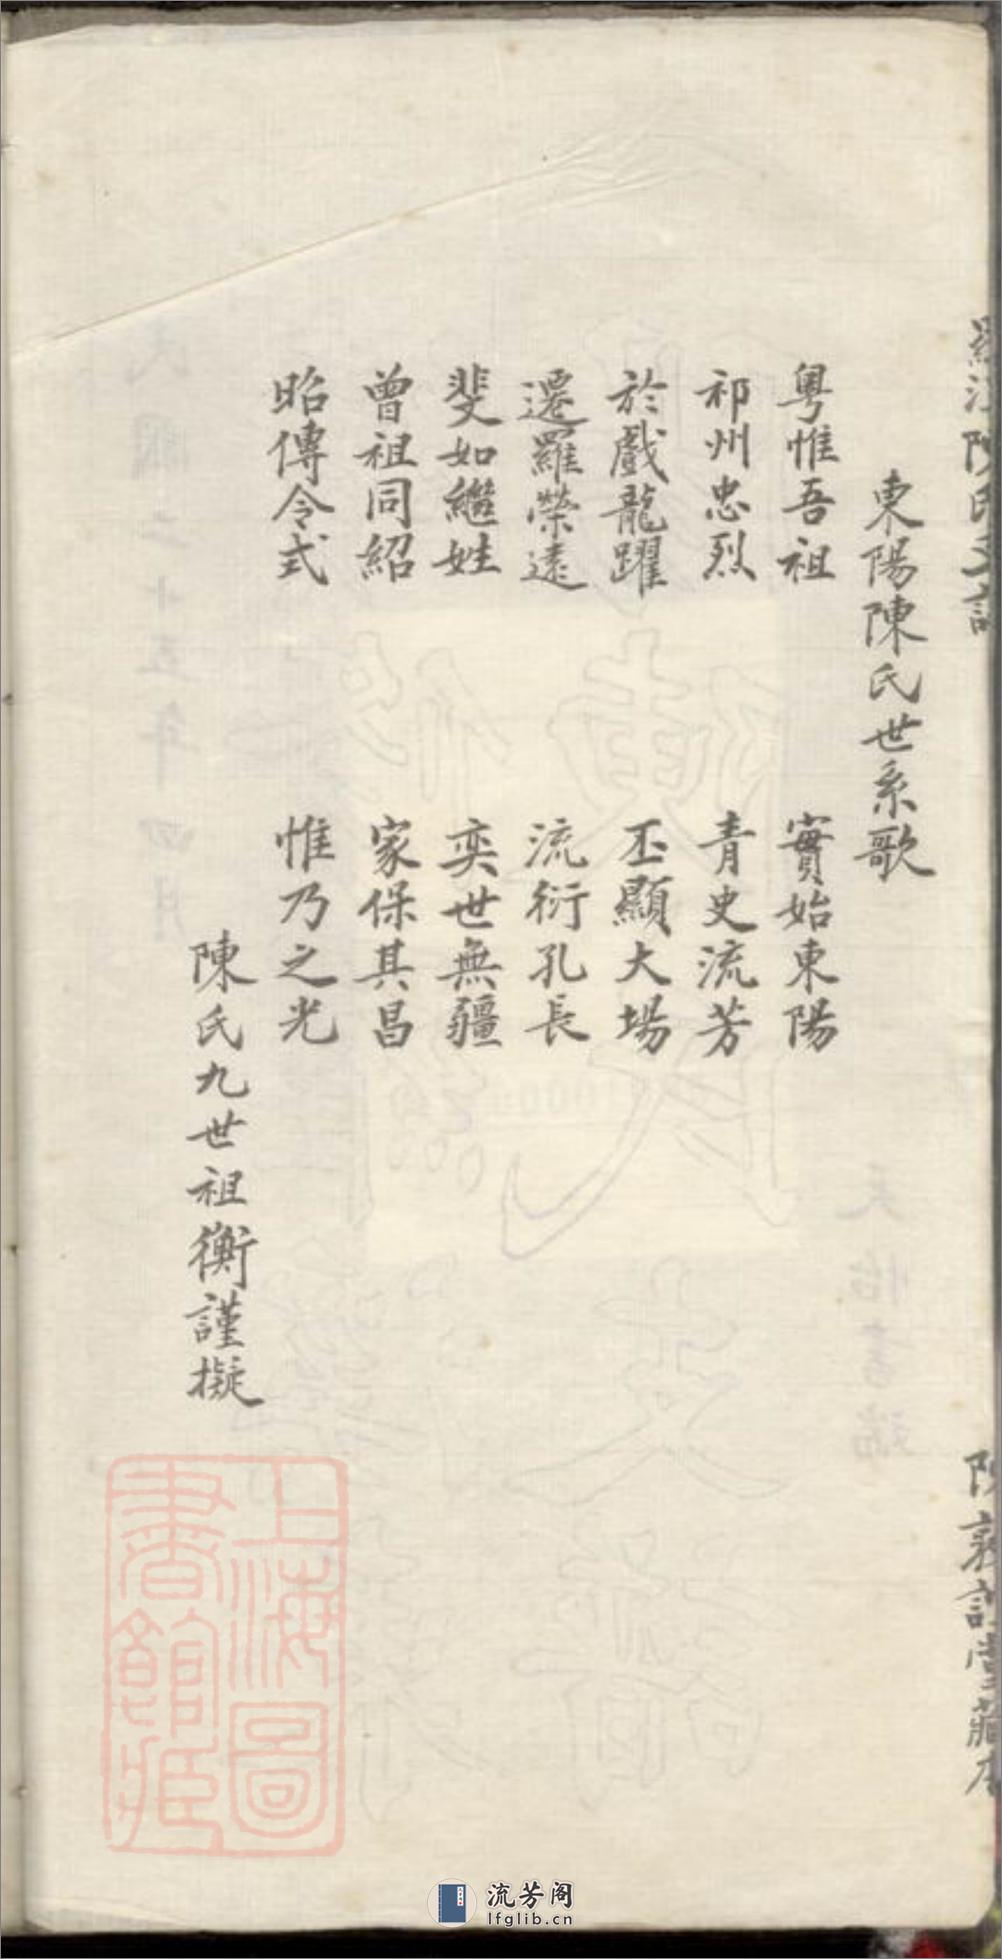 東陽陳氏世系歌
粤惟吾祖 實始東陽
祁州忠烈 青史流芳
於戲龍躍 丕顯大場
遷羅榮遠 流衍孔長
斐如繼姓 奕世無疆
曾祖同紹 家保其昌
昭傳令式 惟乃之光
陳氏九世祖衡謹擬
上海圖
書館藏
流芳阁
lfglib.cn